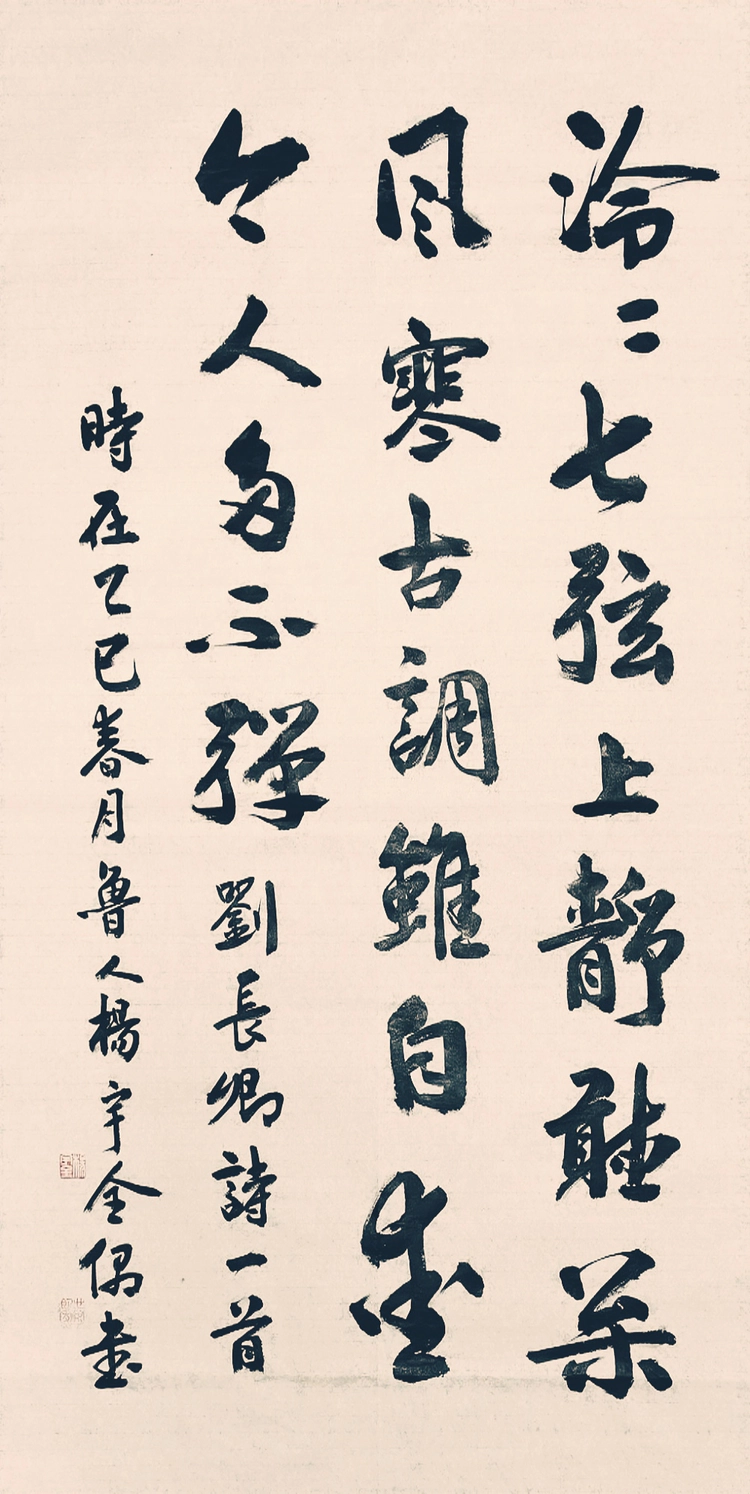 泠〻七弦上靜聽松
風寒古調雖自愛
今人多不彈劉長卿詩一首
時在乙巳春月魯人楊宇全偶書